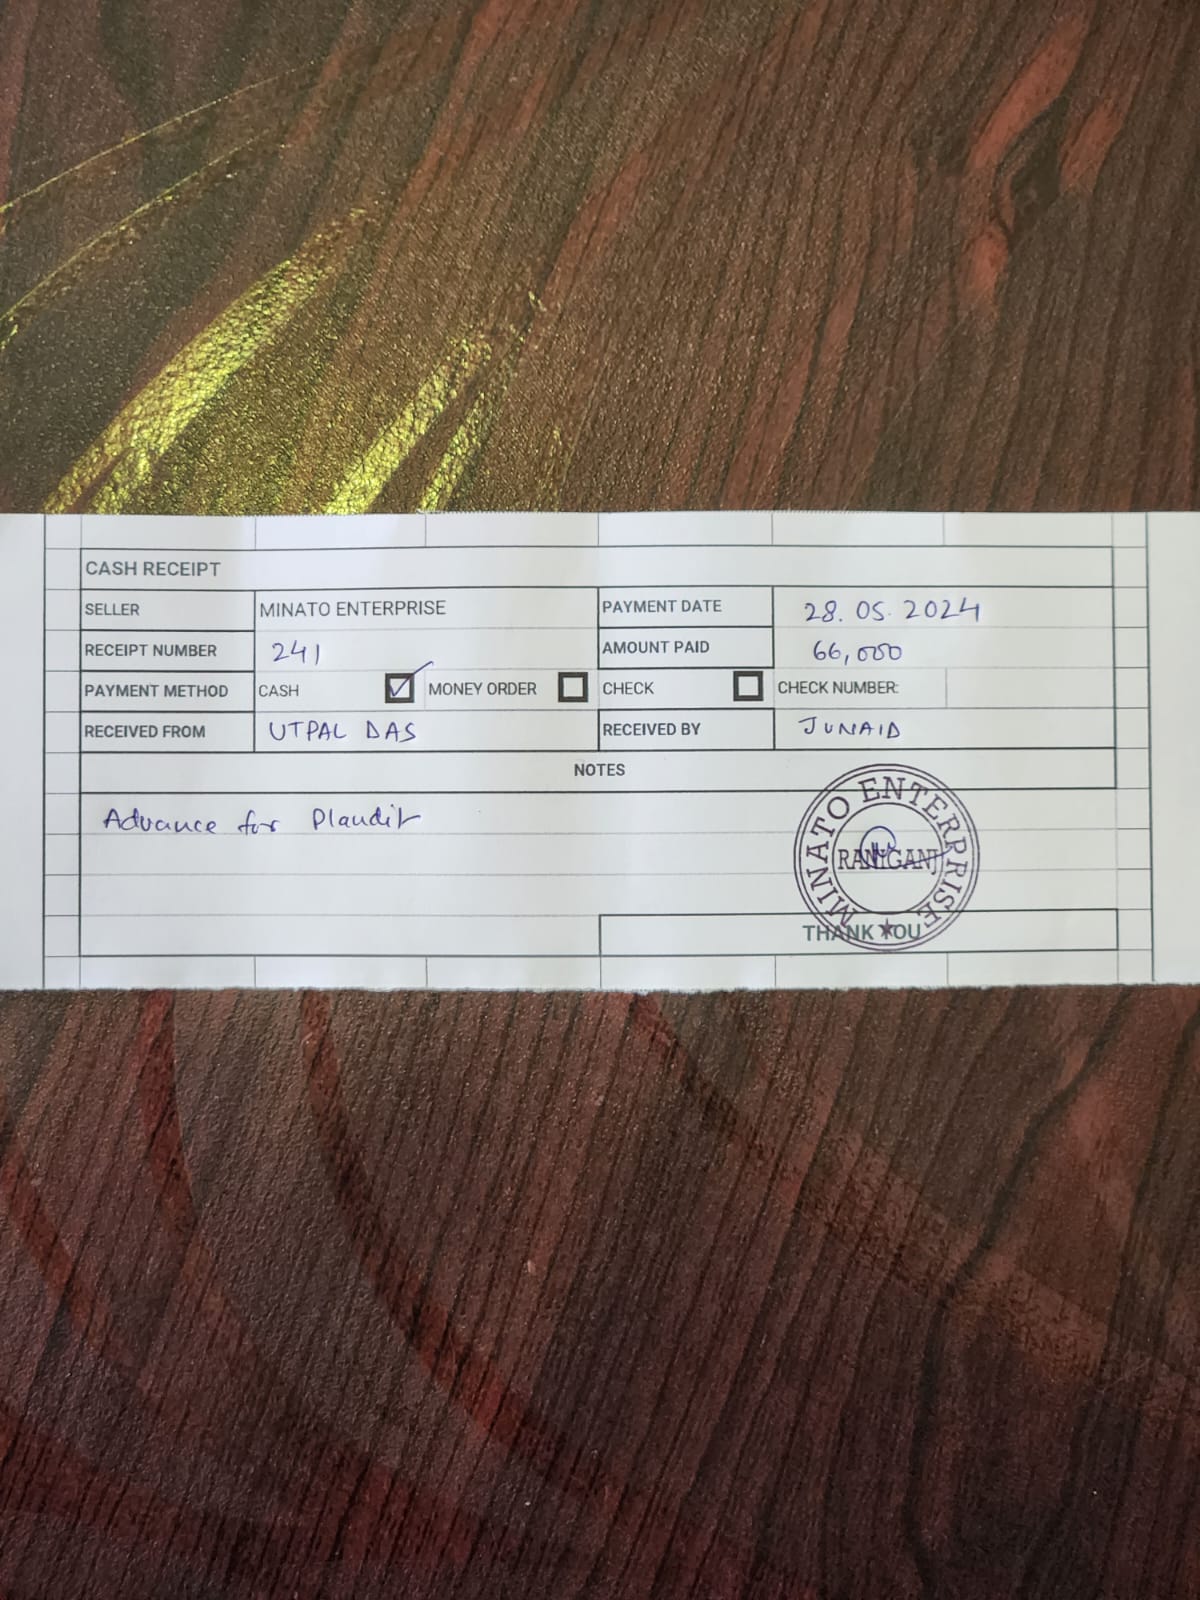 CASH RECEIPT
SELLER MINATO ENTERPRISE PAYMENT DATE 28.05.2024
RECEIPT NUMBER 241 AMOUNT PAID 66,000
PAYMENT METHOD CASH MONEY ORDER CHECK CHECK NUMBER:
RECEIVED FROM UTPAL DAS RECEIVED BY JUNAID
NOTES
Advance for Plaudit
MINATO ENTERPRISE
RANIGANJ
THANK YOU